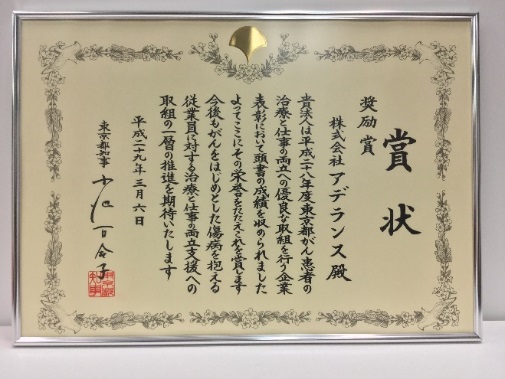 賞状
奨励賞
株式会社アデランス殿
貴法人は平成二十八年度東京都がん患者の
治療と仕事の両立への優良な取組を行う企業
表彰において頭書の成績を収められました
よってここにその栄誉をたたえこれを賞します
今後もがんをはじめとした傷病を抱える
従業員に対する治療と仕事の両立支援への
取組の一層の推進を期待いたします
平成二十九年三月六日
東京都知事 小池百合子